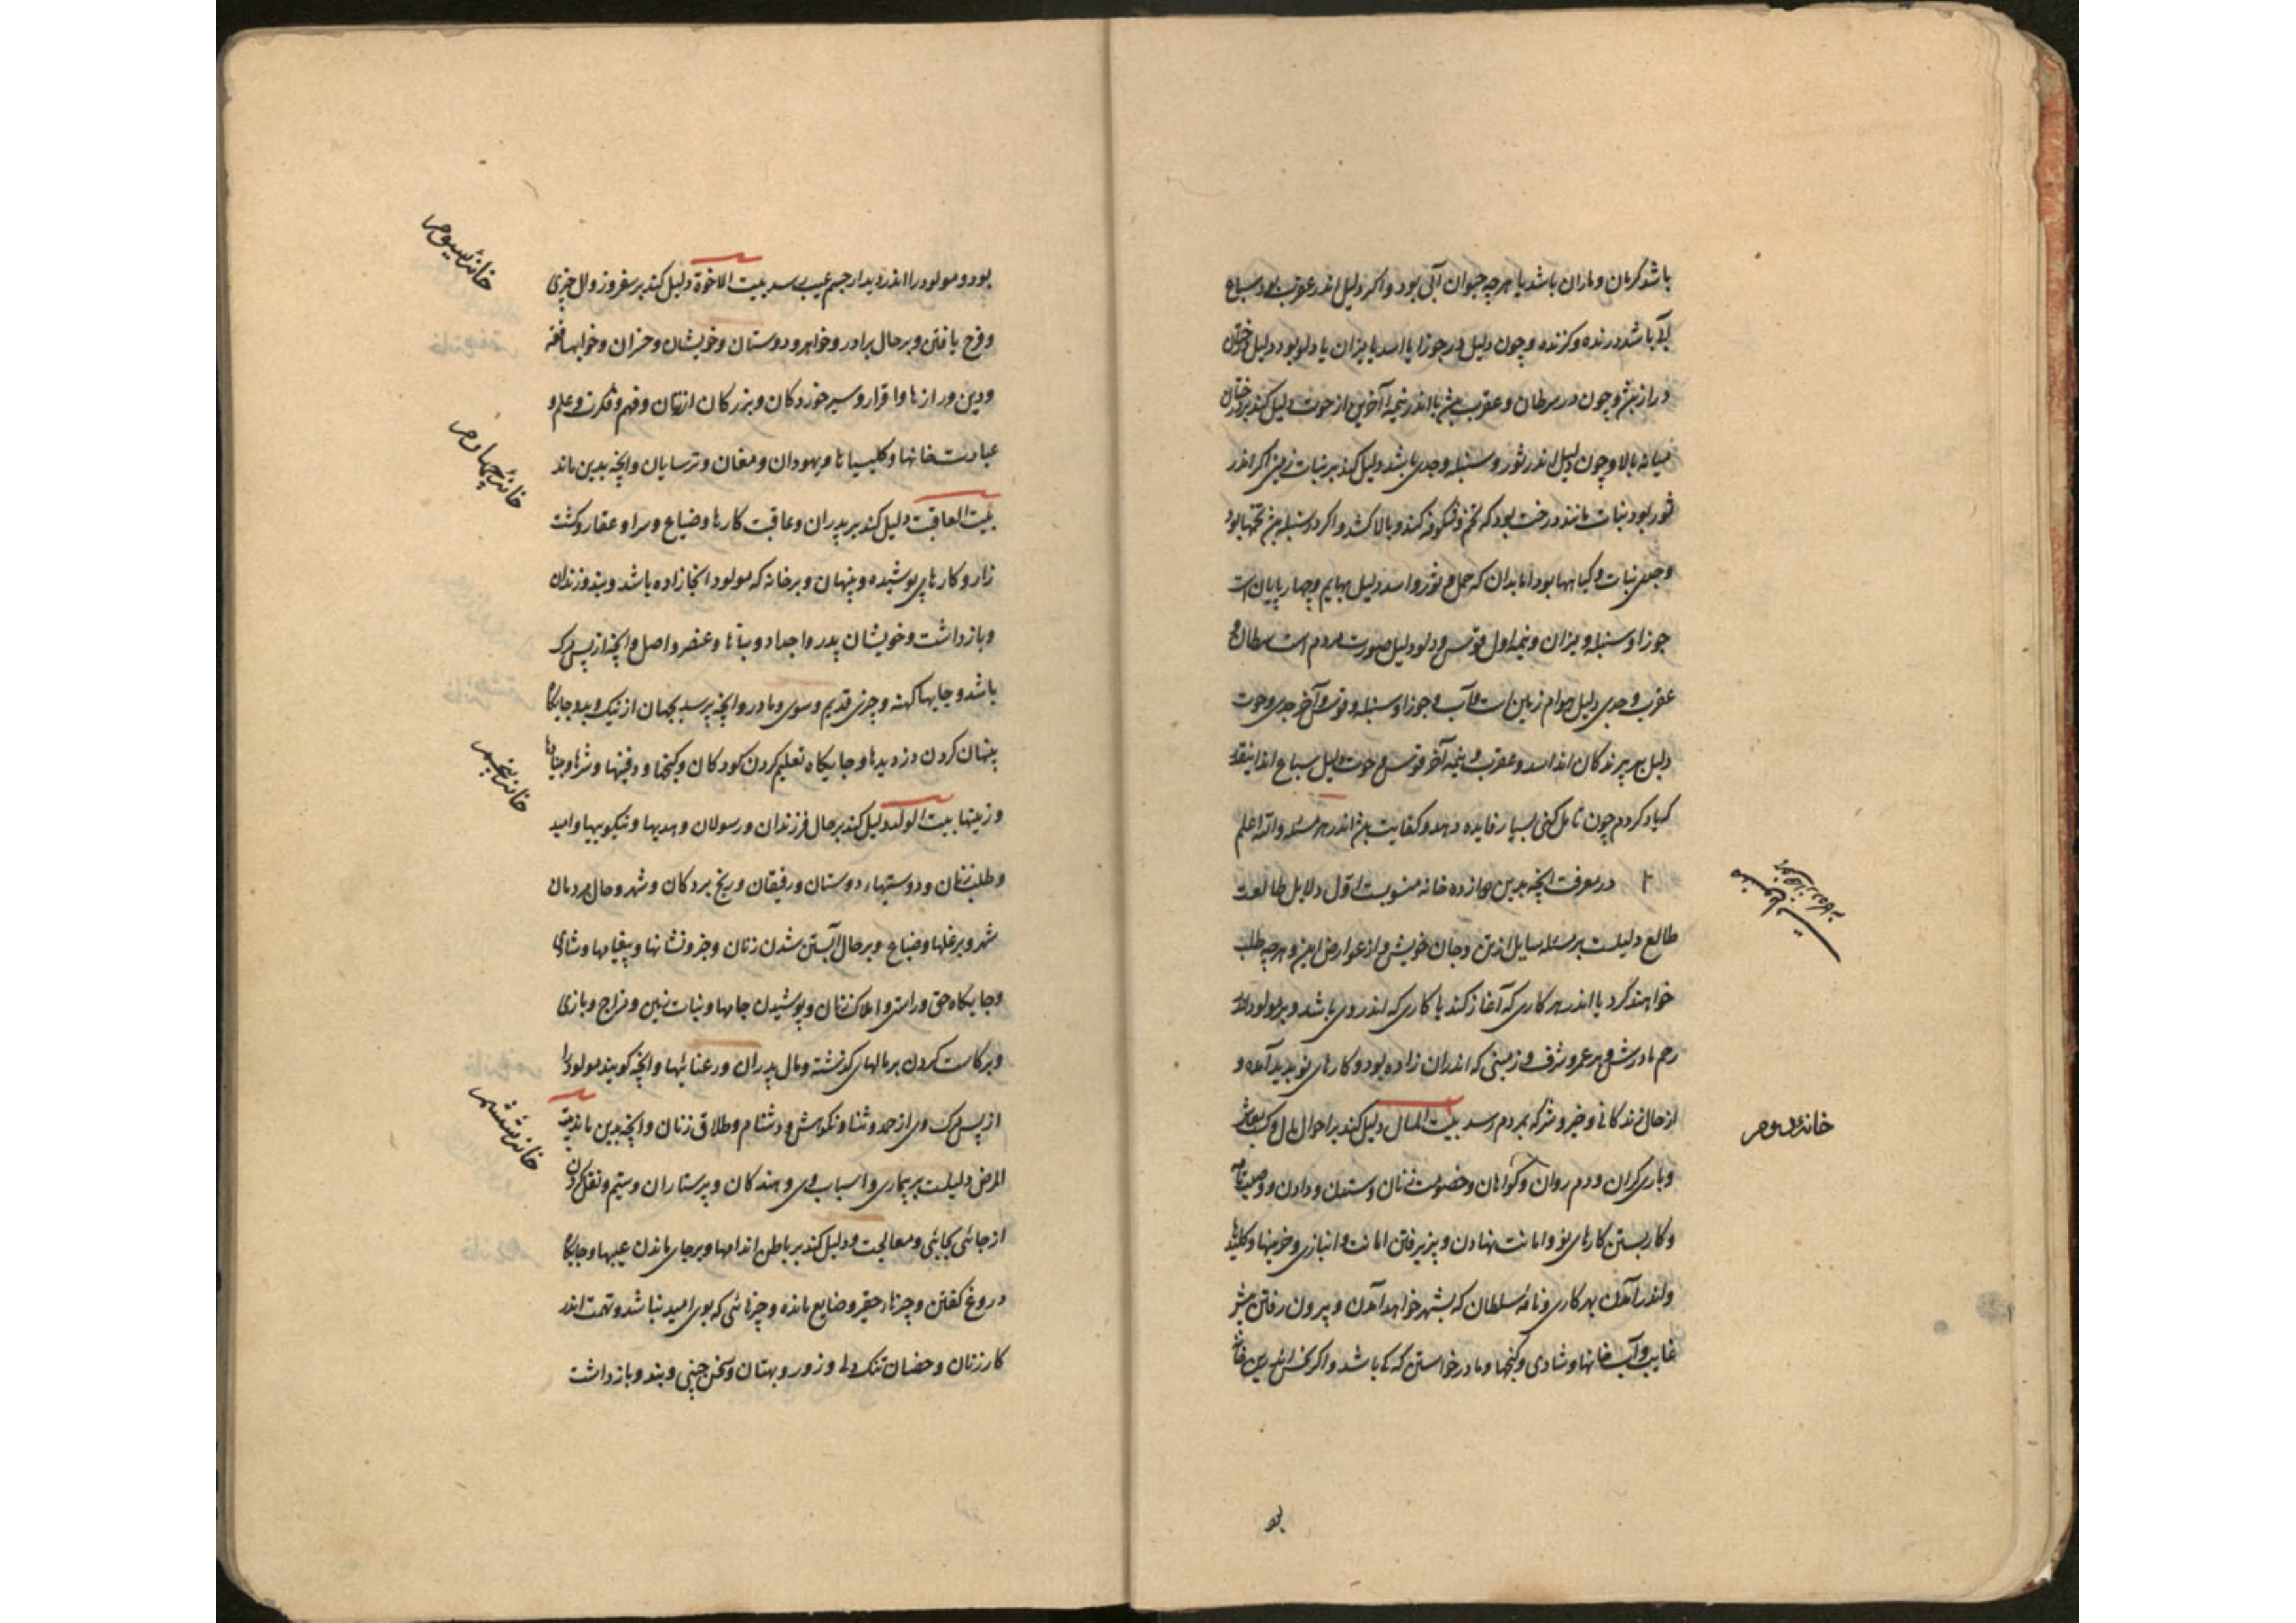 باشد کرمان و ماران باشد یا هرچه حیوان آبی بود و اکر دلیل اندر عقرب بود سباع
آبی باشد درنده و کزنده و چون دلیل در جوزا یا اسد یا میزان یا دلو بود دلیل درختان
دراز بیش و چون در سرطان و عقرب بیش یا اندر نیمهٔ آخرین از حوت دلیل کند بر درختان
میانه بالا و چون دلیل اندر ثور و سنبله و جدی باشد دلیل کند بر نبات زمین اکر اندر
ثور بود نبات مانند درخت بود که تخم و شکوفه کند و بالا کشد و اکر در سنبله بیش تخمها بود
و جدی نبات و کیاهها بود اما بدان که حمل و ثور و اسد دلیل بهایم و چهارپایان است
جوزا و سنبله و میزان و نیمه اول قوس و دلو دلیل صورت مردم است سرطان و
عقرب و جدی دلیل هوام زمین است و آب و جوزا و سنبله و قوس و آخر جدی و حوت
دلیل بر پرندکان اند اسد و عقرب و نیمه آخر قوس و حوت دلیل سباع اند اینقدر
که یاد کردم چون تامل کنی بسیار فایده دهد و کفایت بیش اندر هر مسئله والله اعلم
در معرفت آنچه بدین دوازده خانه منسوبست اول دلایل طالعت
طالع دلیلست بر مسئله سایل از تن و جان خویش و از عوارض این و هرچه طلب
خواهند کرد یا اندر هر کاری که آغاز کند یا کاری که اندر وی باشد و بر مولود اندر
رحم مادرش و بر عمر و شرف و زمینی که اندران زاده بود و کارهای نو پدید آمده و
از حال زندکانی و خیر و شر که بمردم رسد بیت المال دلیل کند بر احوال مال و کسب معاش
و یاری کران و دم روان و کواهان و خصومت زنان و ستدن و دادن و وصیت نامه
و کار بستن کارهای نو و امانت نهادن و پذیرفتن امانت و انبازی و خزینها و کلیدها
و اندر آمدن بهر کاری و نامهٔ سلطان که بشهر خواهد آمدن و بیرون رفتن
غایب و آب خانها و شادی و کنجها و مادر خواستن که کی باشد و اکر نحس اندرین خانه
خانهٔ دوم
بود و مولود را اندر دیدار چشم عیب رسد بیت الاخوة دلیل کند بر سفر و زوال چیزی
و فرح یافتن و بر حال برادر و خواهر و دوستان و خویشان و خسران و خوابها و فقه
و دین و رازها و اقرار و سیر خوردکان و بزرکان از تن و فهم و فکرت و علم و
عبادت خانها و کلیسیاها و یهودان و مغان و ترسایان و آنچه بدین ماند
بیت العاقبت دلیل کند بر پدران و عاقبت کارها و ضیاع و سرا و عقار و کشت
زار و کارهای پوشیده و پنهان و بر خانه که مولود آنجا زاده باشد و بند و زندان
و بازداشت و خویشان پدر و اجداد و بناها و عنصر و اصل و آنچه از پس مرک
باشد و جایها کهنه و چیزی قدیم و سوی مادر و آنچه پرسد بجهان از نیک و بد و جایکاه
پنهان کردن دزدیدها و جایکاه تعلیم کردن کودکان و کنجها و دفینها و
و زمینها بیت الولد دلیل کند بر حال فرزندان و رسولان و هدیها و نیکوییها و امید
و طلب زنان و دوستیها و دوستان و رفیقان و رنج بردکان و شهر و حال مردمان
شهر و بر غلها و ضیاع و بر حال آبستن شدن زنان و خبر و نشانها و پیغامها و شادی
و جایکاه حق و راستی و املاک زنان و پوشیدن جامها و نبات زمین و مزاح و بازی
و برکاست کردن بر مالهای کذشته و مال پدران و رعنائیها و آنچه کویند مولود را
از پس مرک وی از حمد و ثنا و نکوهش و دشنام و طلاق زنان و آنچه بدین ماند بیت
المرض دلیلست بر بیماری و اسباب وی و بندکان و پرستاران و ستم و نقل کردن
از جائی بجائی و معالجت و دلیل کند بر باطن اندامها و بر جای ماندن عیبها و جایکاه
دروغ کفتن و چیزهاء حقیر و ضایع مانده و چیزهائی که بوی امید نباشد و تهمت اندر
کار زنان و خصمان تنک دلی و زور و بهتان و سخن چینی و بند و بازداشت
خانهٔ سیوم
خانهٔ چهارم
خانهٔ پنجم
خانهٔ ششم